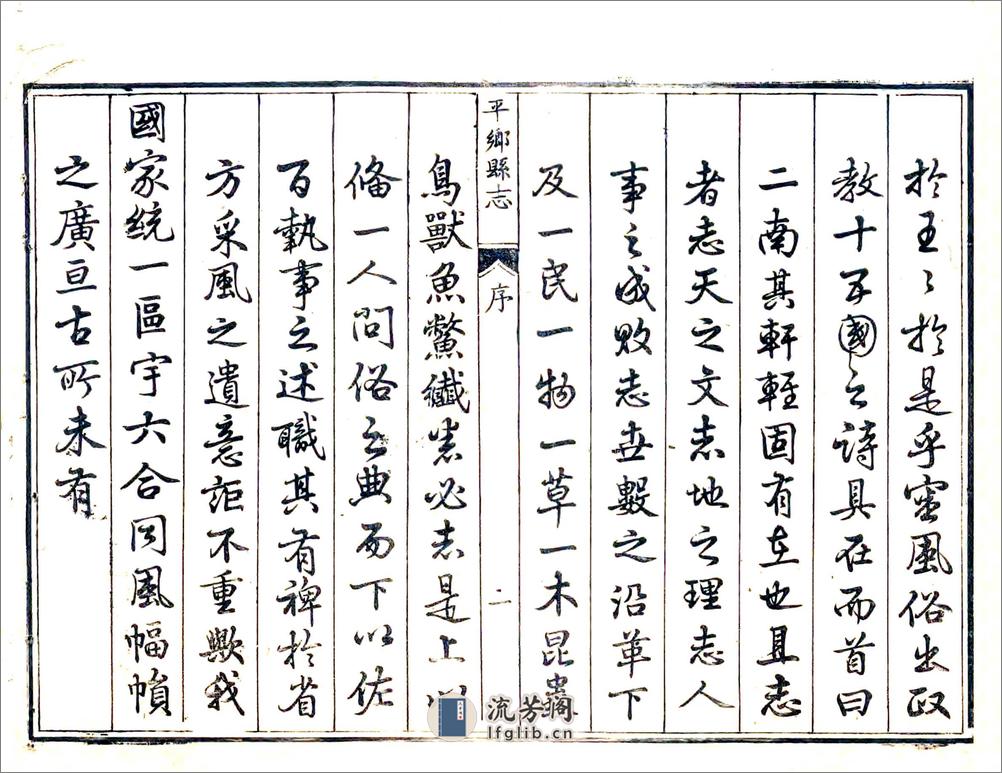 於王〻於是乎室風俗出政
教十五國之詩具在而首曰
二南其軒輊固有在也且志
者志天之文志地之理志人
事之成敗志世數之沿革下
及一民一物一草一木昆蟲
平鄉縣志
序
二
鳥獸魚鱉纖悉必志是上以
備一人問俗之典而下以佐
百執事之述職其有裨於省
方采風之遺意詎不重歟我
國家統一區宇六合同風幅幀
之廣亘古所未有
流芳阁
lfglib.cn